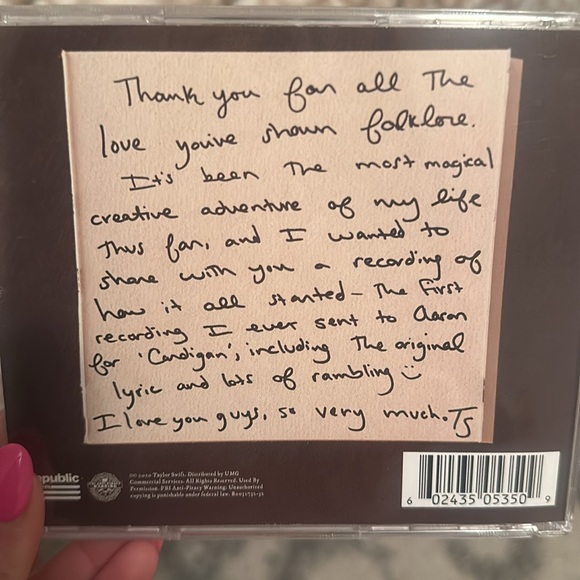 Thank you for all the
love you've shown folklore.
It's been the most magical
creative adventure of my life
thus far, and I wanted to
share with you a recording of
how it all started - the first
recording I ever sent to Aaron
for 'Cardigan', including the original
lyric and lots of rambling :)
I love you guys, so very much. TS
public
℗© 2020 Taylor Swift. Distributed by UMG
Commercial Services. All Rights Reserved. Used By
Permission. FBI Anti-Piracy Warning: Unauthorized
copying is punishable under federal law.
6 02435 05350 9